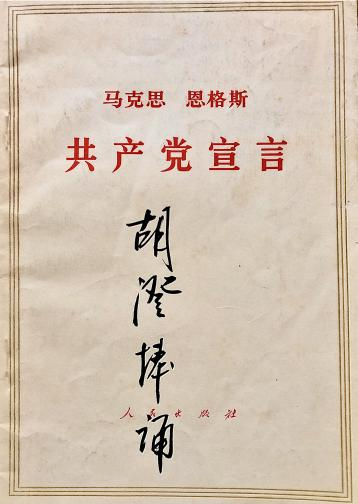 马克思 恩格斯
共产党宣言
胡澄捧诵
人民出版社